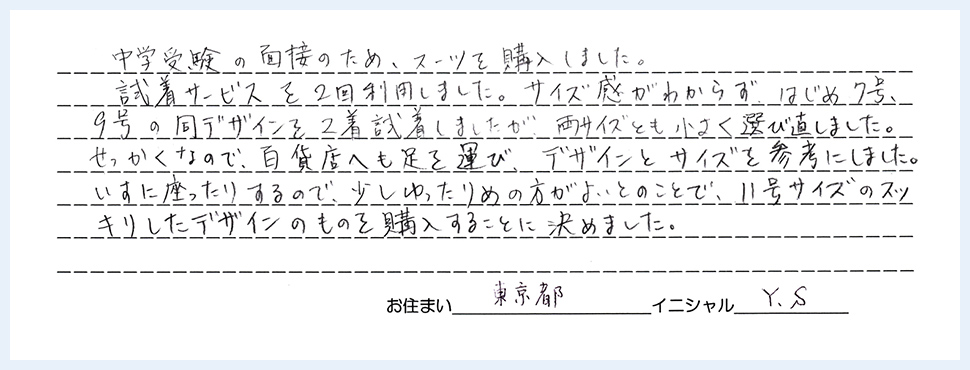 中学受験の面接のため、スーツを購入しました。
試着サービスを2回利用しました。サイズ感がわからず、はじめ7号、
9号の同デザインを2着試着しましたが、両サイズとも小さく選び直しました。
せっかくなので、百貨店へも足を運び、デザインとサイズを参考にしました。
いすに座ったりするので、少しゆったりめの方がよいとのことで、11号サイズのスッ
キリしたデザインのものを購入することに決めました。
お住まい 東京都 イニシャル Y.S